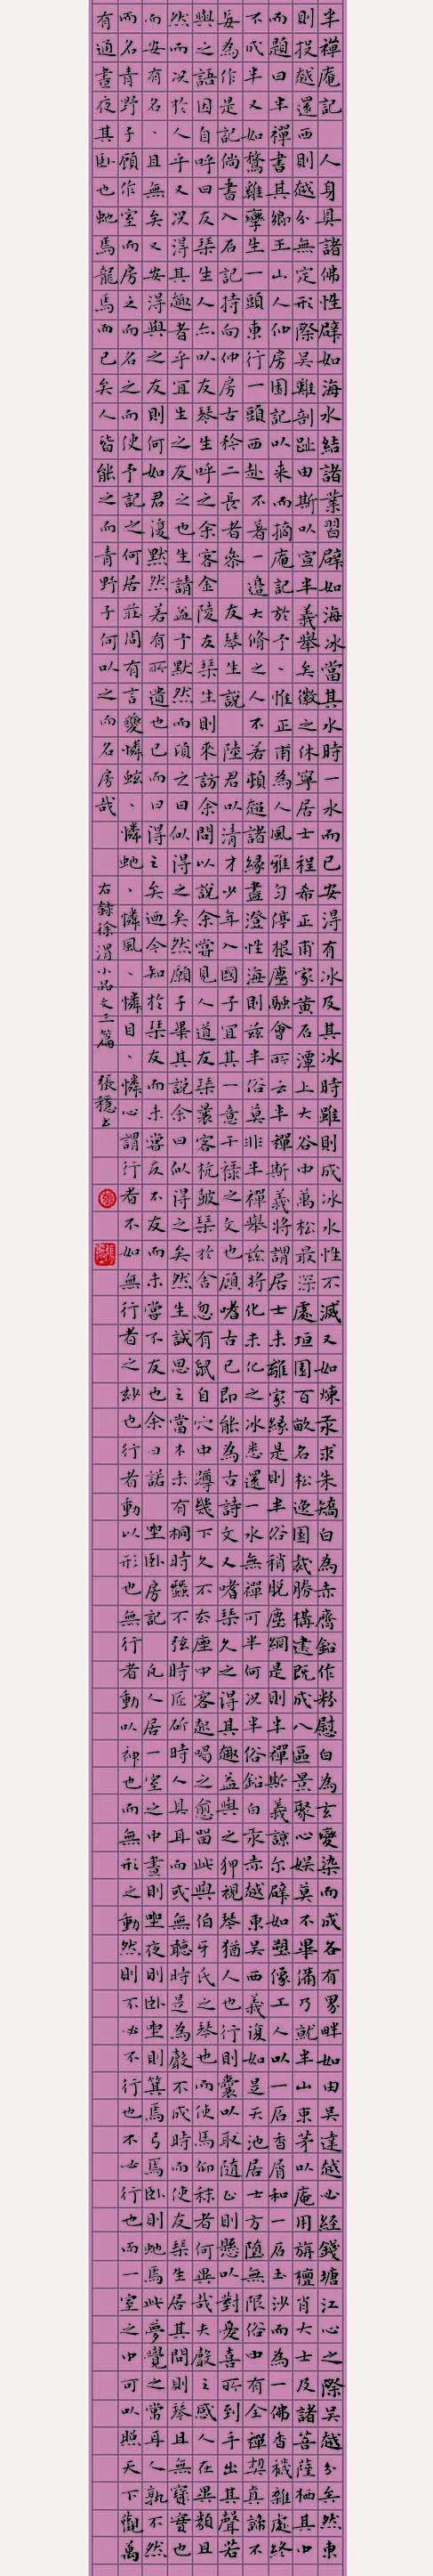 半禪庵記 人身具諸佛性辟如海水結諸業習辟如海冰當其水時一水而已安得有冰及其冰時雖則成冰水性不滅又如煉汞求朱矯白為赤鷹鉛作粉慰白為玄變染而成各有界畔如由吳達越必經錢塘江心之際吳越分矣然東
則投越還西則越分無定形際吳難剖趾由斯以宣半義舉矣徽之休寧居士程希正甫家黃石潭上大谷中萬松最深處垣園百畝名松逸園裁勝構建既成八區景聚心娛莫不畢備乃就半山東茅以庵用旃檀肖大士及諸菩薩栖其中
而題曰半禪書其鄉王山人仲房圍記以來而摘庵記於予、惟正甫為人風雅勻停根塵融會所云半禪斯義將謂居士未離家緣是則半俗稍脫塵網是則半禪斯義諒尔辟如塑像工人以一石香屑和一石玉沙而為一佛香穢雜處終
不成半又如驚雞孿生一頭東行一頭西赴不著一邊大脩之人不若頓超諸緣盡澄性海則茲半俗莫非半禪舉茲將化未化之冰悉還一水無禪可半何況半俗鉛白汞赤越東吳西義復如是天池居士方墮無限俗中有全禪契真諦不
妄為作是記倘書入石記持向仲房古矜二長者參 友琴生說 陸君以清才少年入國子宜其一意干祿之文也顧嗜古已即能為古詩文又嗜琴久之得其趣益與之狎視琴猶人也行則囊以取隨止則懸以對憂喜所到手出其聲若
與之語因自呼曰友琴生人亦以友琴生呼之余客金陵友琴生則來訪余問以說余嘗見人道友琴曩客杭鼓琴於舍忽有鼠自穴中蹲幾下久不去座中客起喝之愈留此與伯牙氏之琴也而使馬仰秣者何異哉夫聲之感人在異類且
然而況於人乎又況得其趣者乎宜生之友之也生請益予默然而頃之曰似得之矣然願子畢其說余曰似得之矣然生誠思之當木未有桐時蠶不弦時匠斫時人具耳而或無聽時是為聲不成時而使友琴生居其間則琴且無實也且
而安有名、且無矣又安得與之友則何如君之復默然若有所遺也已而曰得之矣迺今知於琴友而未嘗友不友而未嘗不友也余曰諾 坐臥房記 凡人居一室之中晝則坐夜則臥坐則箕焉弓焉臥則虵焉此夢覺之常耳人孰不然
而名青野子顧作室而房之而名之而使予記之何居莊周有言夔憐蚿、憐虵、憐風、憐目、憐心謂行者不如無行者之玅也行者動以形也無行者動以神也而無形之動然則不必不行也不必行也而一室之中可以照天下觀萬
有通晝夜其臥也虵焉龍焉而已矣人皆能之而青野子何以之而名房哉
右錄徐渭小品文三篇 張穩書